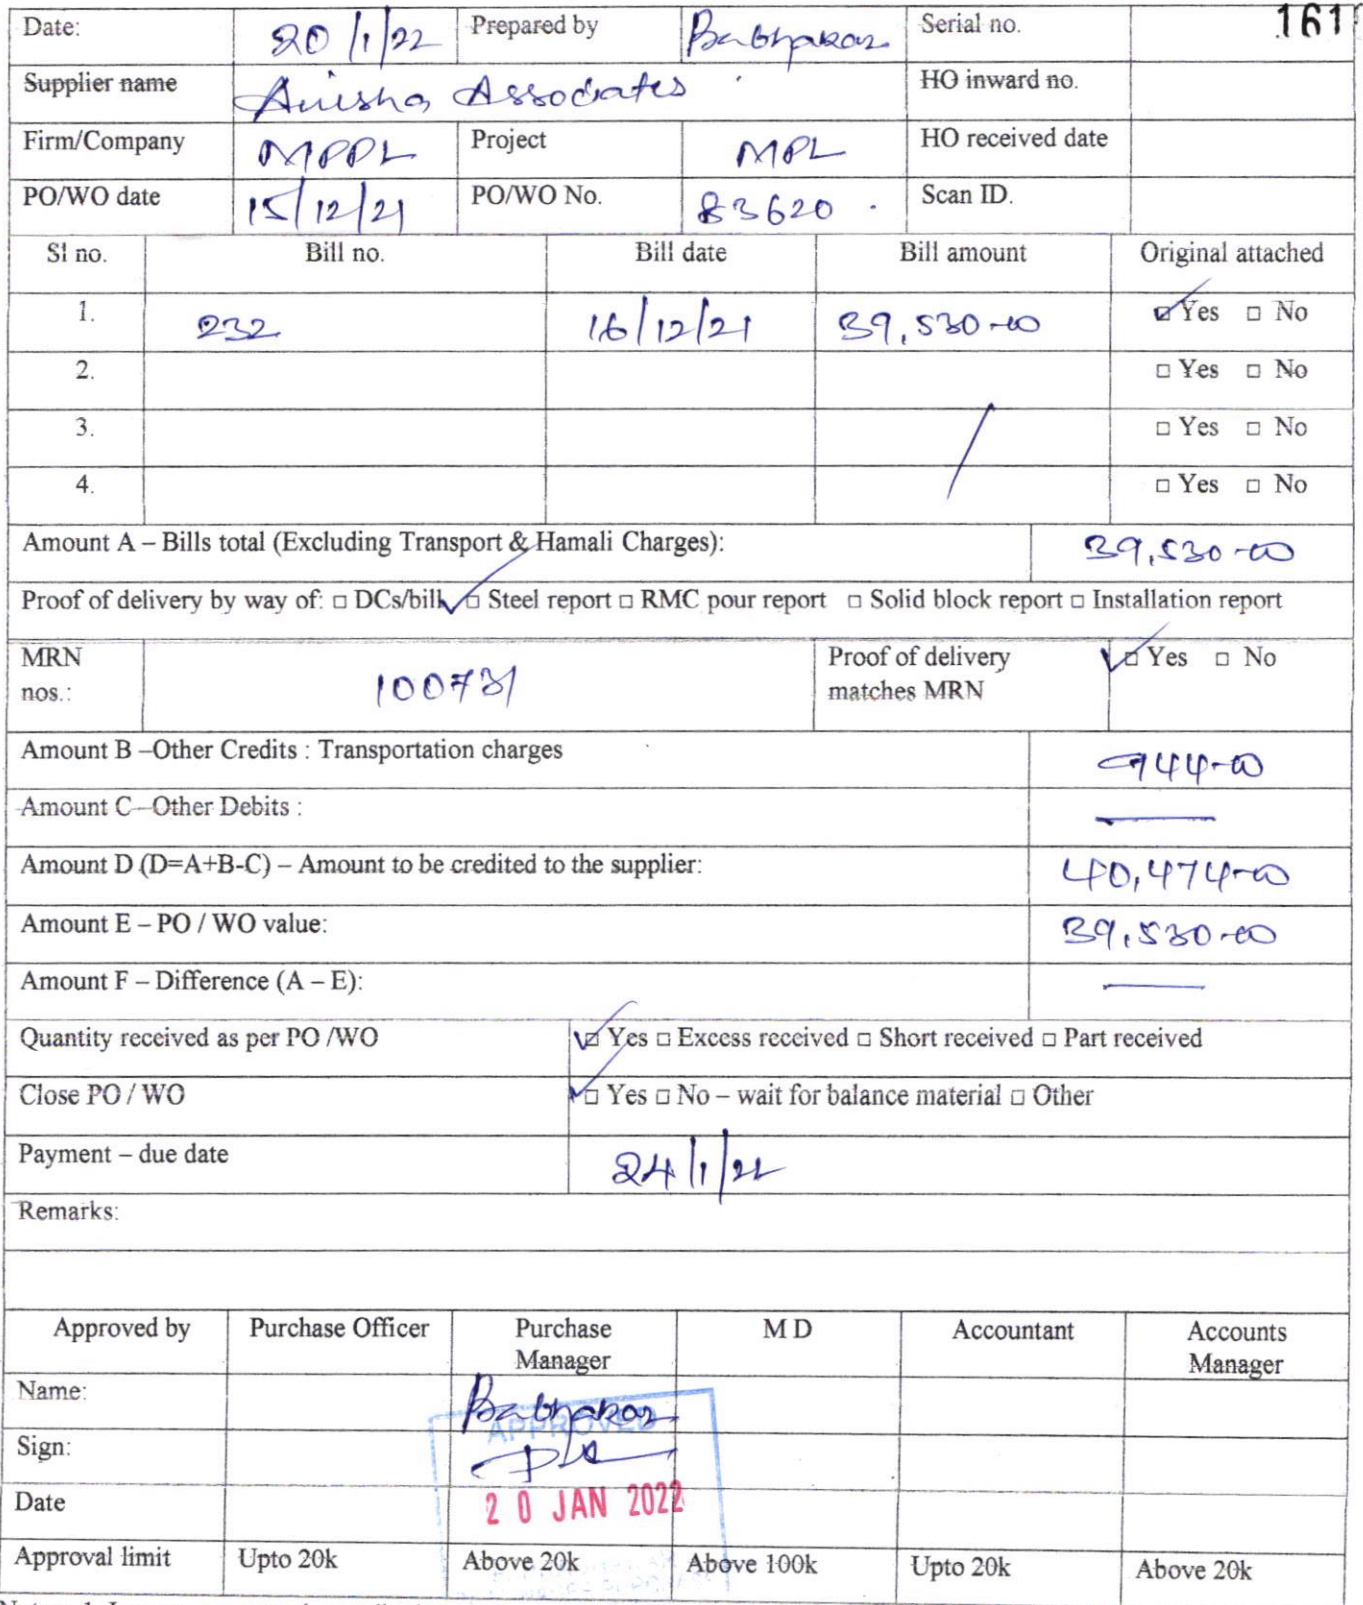 Date: 20/1/22 Prepared by Babhakar Serial no. 161
Supplier name Anisha Associates HO inward no.
Firm/Company MPPL Project MPL HO received date
PO/WO date 15/12/21 PO/WO No. 83620 Scan ID.
Sl no. Bill no. Bill date Bill amount Original attached
1. 232 16/12/21 39,530-00 ☑ Yes □ No
2. □ Yes □ No
3. □ Yes □ No
4. □ Yes □ No
Amount A – Bills total (Excluding Transport & Hamali Charges): 39,530-00
Proof of delivery by way of: □ DCs/bill ☑ Steel report □ RMC pour report □ Solid block report □ Installation report
MRN nos.: 100731 Proof of delivery matches MRN ☑ Yes □ No
Amount B –Other Credits : Transportation charges 944-00
Amount C –Other Debits : —
Amount D (D=A+B-C) – Amount to be credited to the supplier: 40,474-00
Amount E – PO / WO value: 39,530-00
Amount F – Difference (A – E): —
Quantity received as per PO /WO ☑ Yes □ Excess received □ Short received □ Part received
Close PO / WO ☑ Yes □ No – wait for balance material □ Other
Payment – due date 24/1/22
Remarks:
Approved by Purchase Officer Purchase Manager M D Accountant Accounts Manager
Name: Babhakar
APPROVED
Sign:
Date 20 JAN 2022
Approval limit Upto 20k Above 20k Above 100k Upto 20k Above 20k